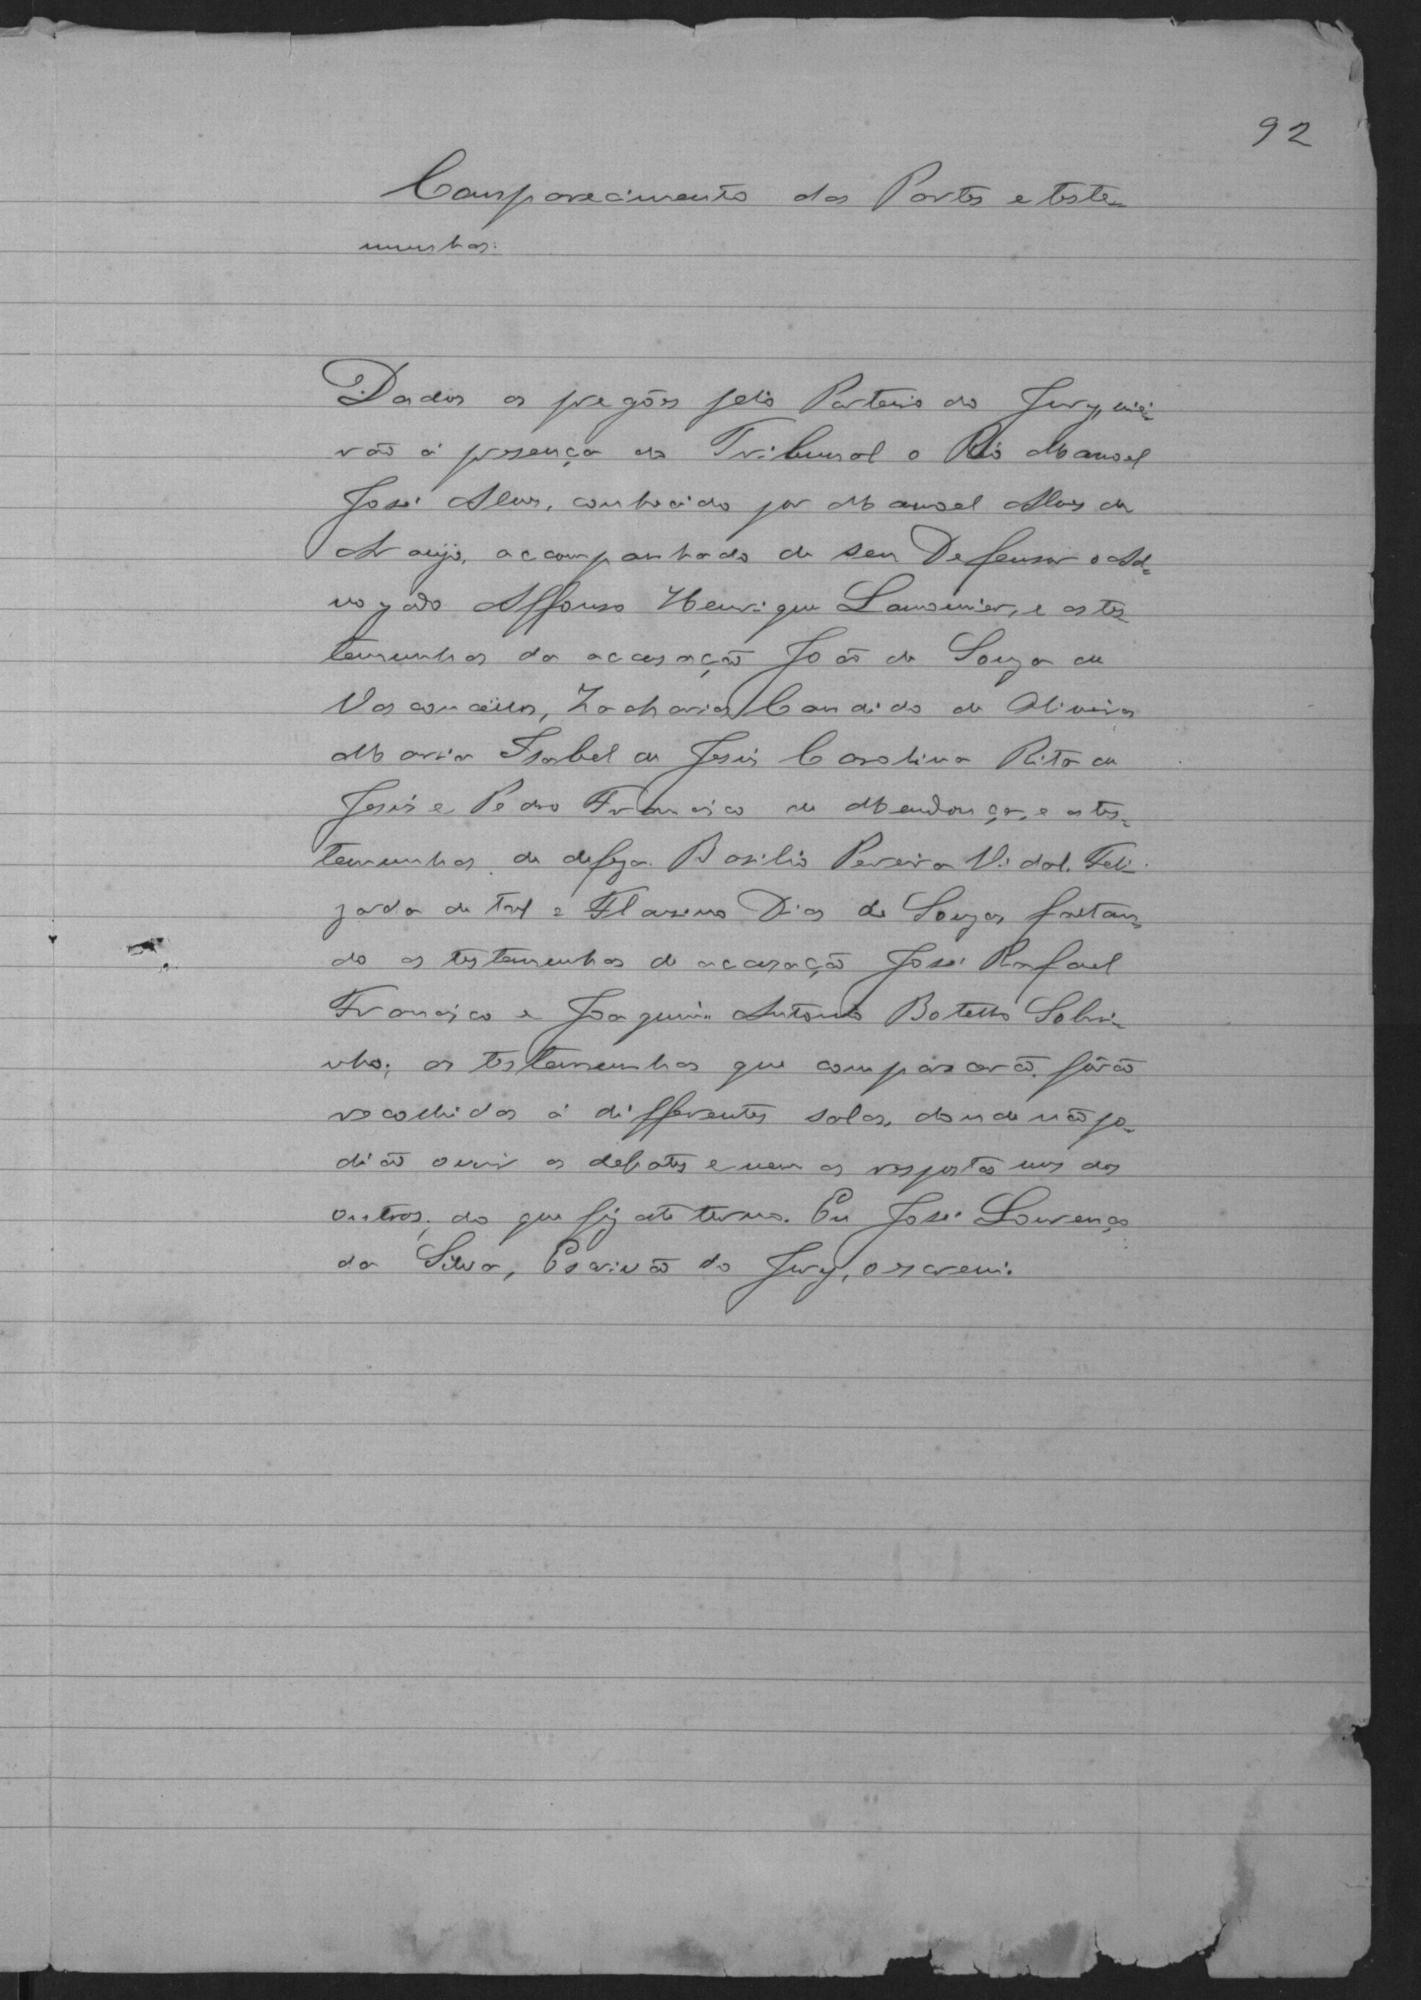 92
Comparecimento das Partes e teste-
munhas.
Dados os pregões pelo Porteiro do Jury, vie-
rão á presença do Tribunal o Réo Manoel
José Alves, conhecido por Manoel Alves de
Araujo, accompanhado de seu Defensor o Ad-
vogado Affonso Henrique Lamounier, e as tes-
temunhas da accusação João de Souza de
Vasconcellos, Zacharias Candido de Oliveira
Maria Isabel de Jesus Carolina Rita de
Jesus e Pedro Francisco de Mendonça, e as tes-
temunhas de defeza Basilio Pereira Vidal, Feli-
zarda de tal e Dias de Souza, faltan-
do as testemunhas de accusação José Rafael
Francisco e Joaquim Antonio Botelho Sobri-
nho; as testemunhas que comparecerão forão
recolhidas á differentes salas, donde não po-
dião ouvir os debates e nem as respostas uns dos
outros; do que fiz este termo. Eu José Lourenço
da Silva, Escrivão do Jury, o escrevi.